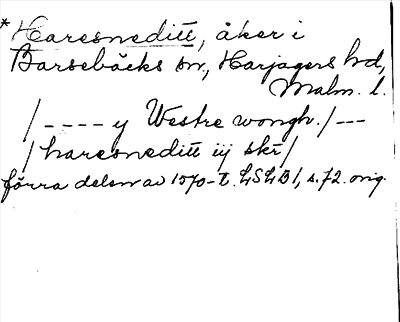 * Haresneditt, åker i
Barsebäcks sn, Harjagers hd,
Malm. l.
/---- y Westre wongh./---
/haresneditt iij skr/
förra delen av 1570-t. LSLB1, s. 72. orig.